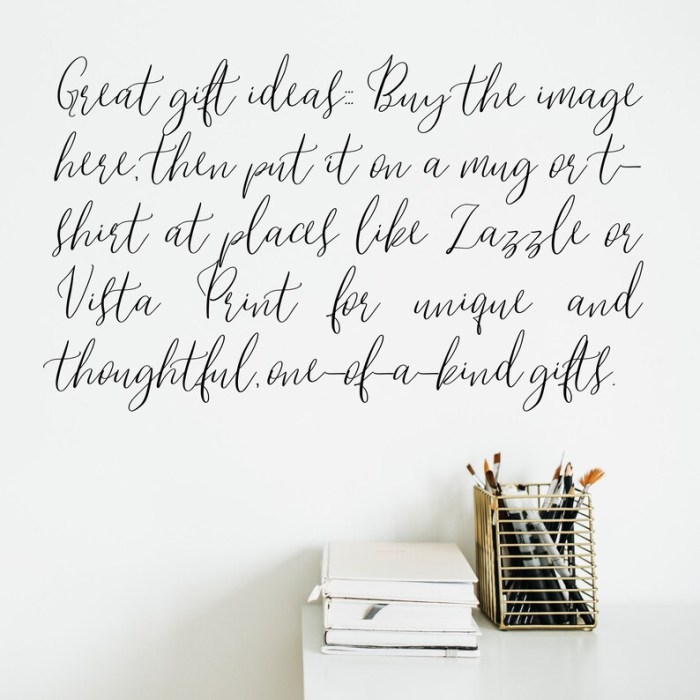 Great gift ideas::: Buy the image
here, then put it on a mug or t-
shirt at places like Zazzle or
Vista Print for unique and
thoughtful, one-of-a-kind gifts.